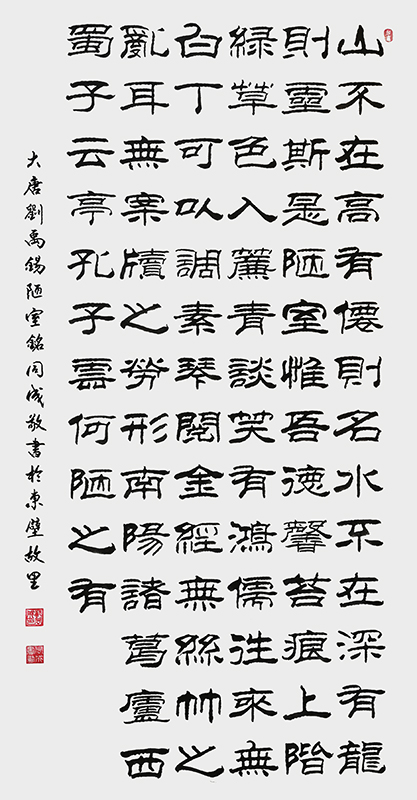 山不在高有僊則名水不在深有龍
則靈斯是陋室惟吾德馨苔痕上階
綠草色入簾青談笑有鴻儒往來無
白丁可以調素琴閱金經無絲竹之
亂耳無案牘之勞形南陽諸葛廬西
蜀子云亭孔子雲何陋之有
大唐劉禹錫陋室銘周成敬書於東壁故里